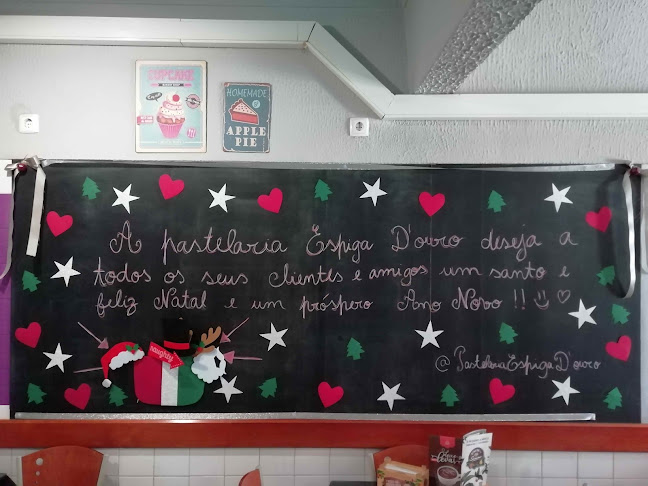 CUPCAKE
HOMEMADE
APPLE
PIE
A pastelaria Espiga D'ouro deseja a
todos os seus clientes e amigos um santo e
feliz Natal e um próspero Ano Novo !!
naughty
@PastelariaEspigaD'ouro